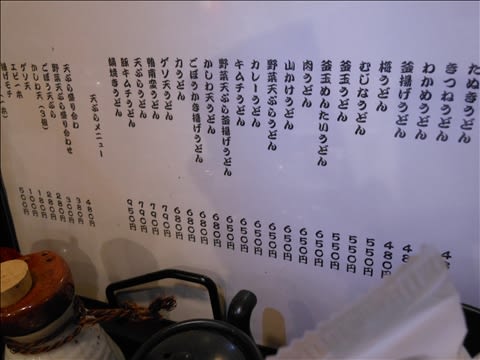 たぬきうどん 4
きつねうどん 48
わかめうどん
釜揚げうどん 48
梅うどん 480円
むじなうどん 550円
釜玉うどん 550円
釜玉めんたいうどん 550円
肉うどん 650円
山かけうどん 650円
野菜天ぷらうどん 650円
カレーうどん 650円
キムチうどん 650円
野菜天ぷら釜揚げうどん 650円
かしわ天うどん 680円
ごぼうかき揚げうどん 680円
力うどん 680円
ゲソ天うどん 790円
鴨南蛮うどん 790円
天ぷらうどん 790円
豚キムチうどん 950円
鍋焼きうどん
天ぷらメニュー
天ぷら盛り合わ 480円
野菜天ぷら盛り合わせ 380円
ごぼう天ぷら 300円
かしわ天(3個) 280円
ゲソ天 280円
エビ一本 180円
揚げモチ一ケ 100円
500円